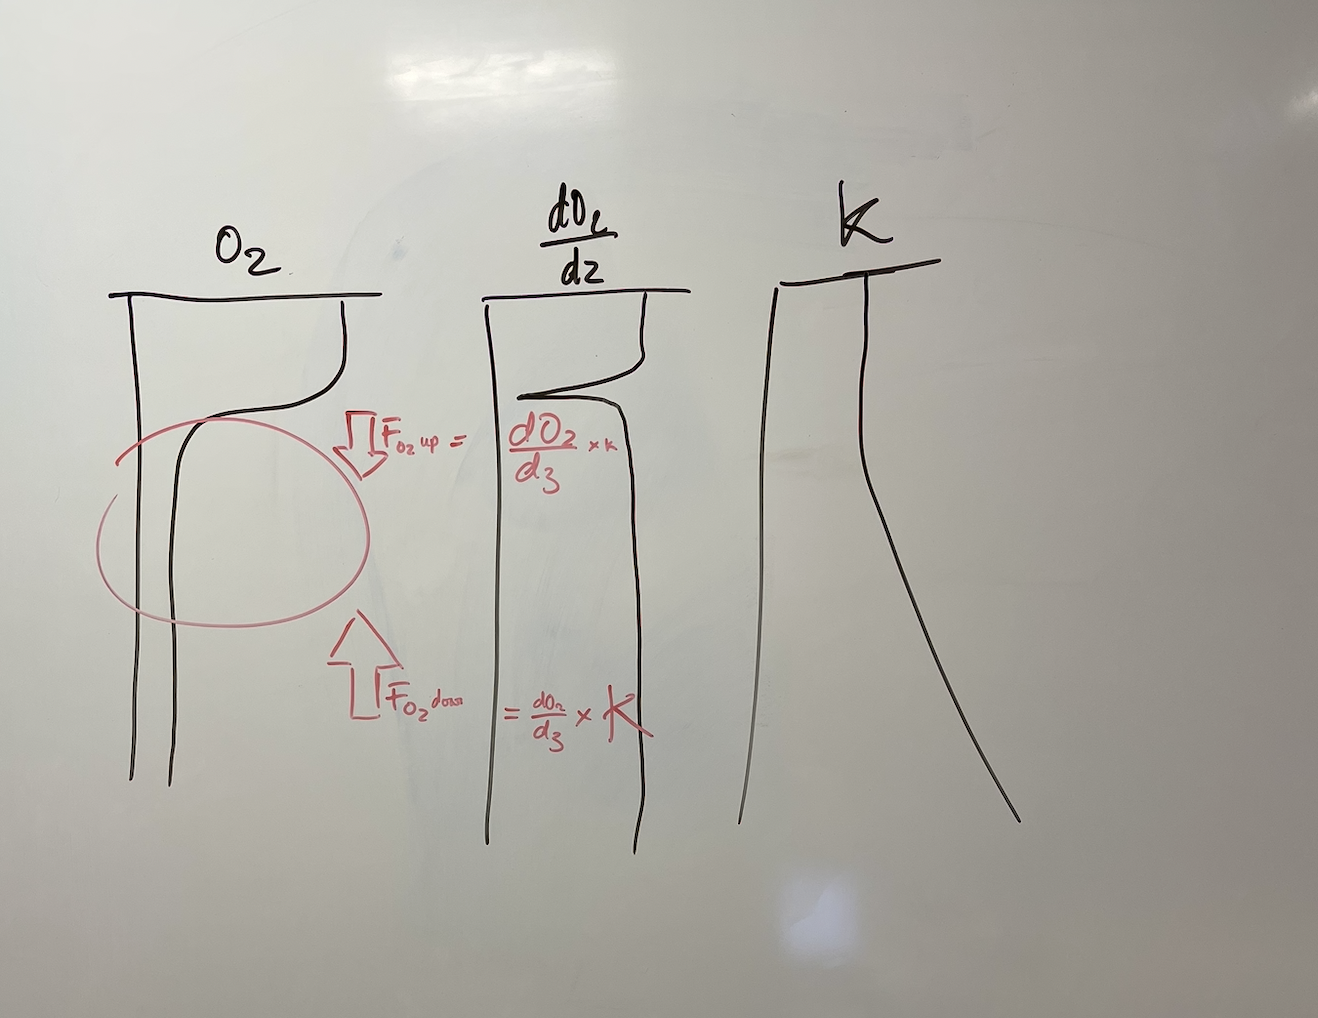 O₂
dO₂/dz
K
F O₂ up = dO₂/dz × K
F O₂ down = dO₂/dz × K